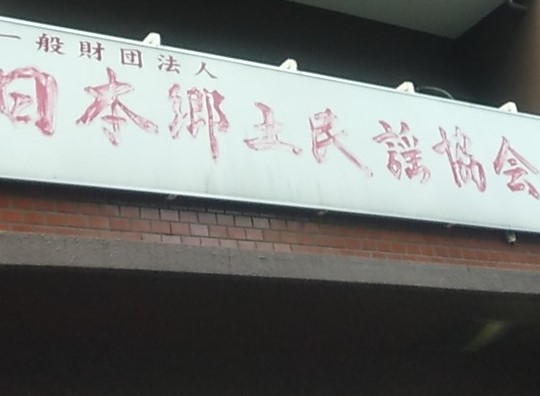 一般財団法人
日本郷土民謡協会